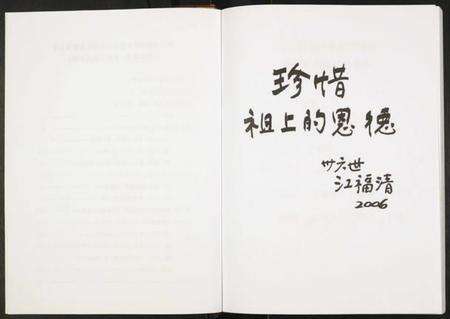 珍惜
祖上的恩德
卅六世
江福清
2006